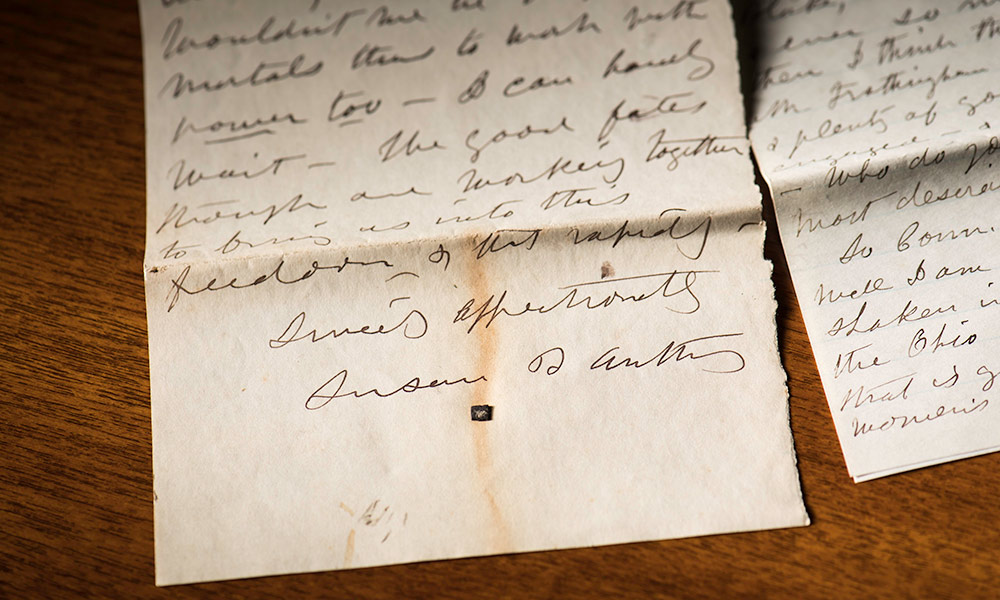 Wouldn't we be
mortals thus to work with
power too — I can hardly
wait — The good fates
though are working together
to bring us into this
freedom & that rapidly —
Sincerely Affectionately
Susan B Anthony
ever so
then I think th
Mr Frothingham
& plenty of go
engaged —
— Who do yo
most desira
So Conn.
Well I am
shaken in
the Ohio
that is g
womens